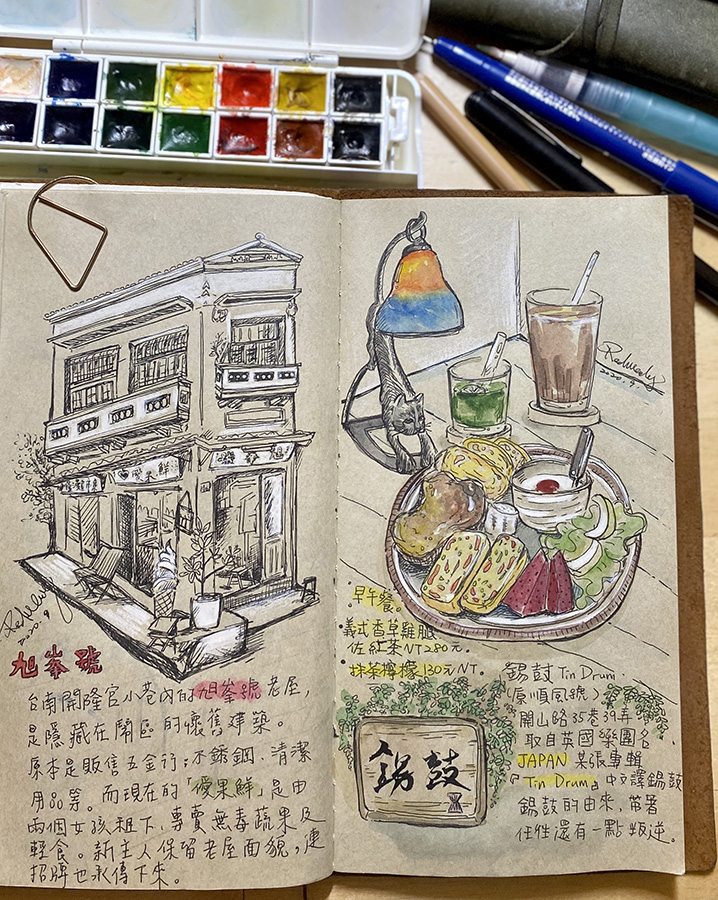 愛果鮮
旭峯號
Redwedy
2020.9
旭峯號
台南開隆宮小巷內的旭峯號老屋,
是隱藏在鬧區的懷舊建築。
原本是販售五金行;不銹鋼、清潔
用品等。而現在的「愛果鮮」是由
兩個女孩租下,專賣無毒蔬果及
輕食。新主人保留老屋面貌,連
招牌也永傳下來。
2020.9.
早午餐。
義式香草雞腿
佐紅茶NT280元.
抹茶檸檬130元NT.
錫鼓
錫鼓 Tin Drum.
(原順風號)
開山路35巷39弄
取自英國樂團名
JAPAN 某張專輯
「Tin Drum」中文譯錫鼓
錫鼓的由來,帶著
任性還有一點叛逆。